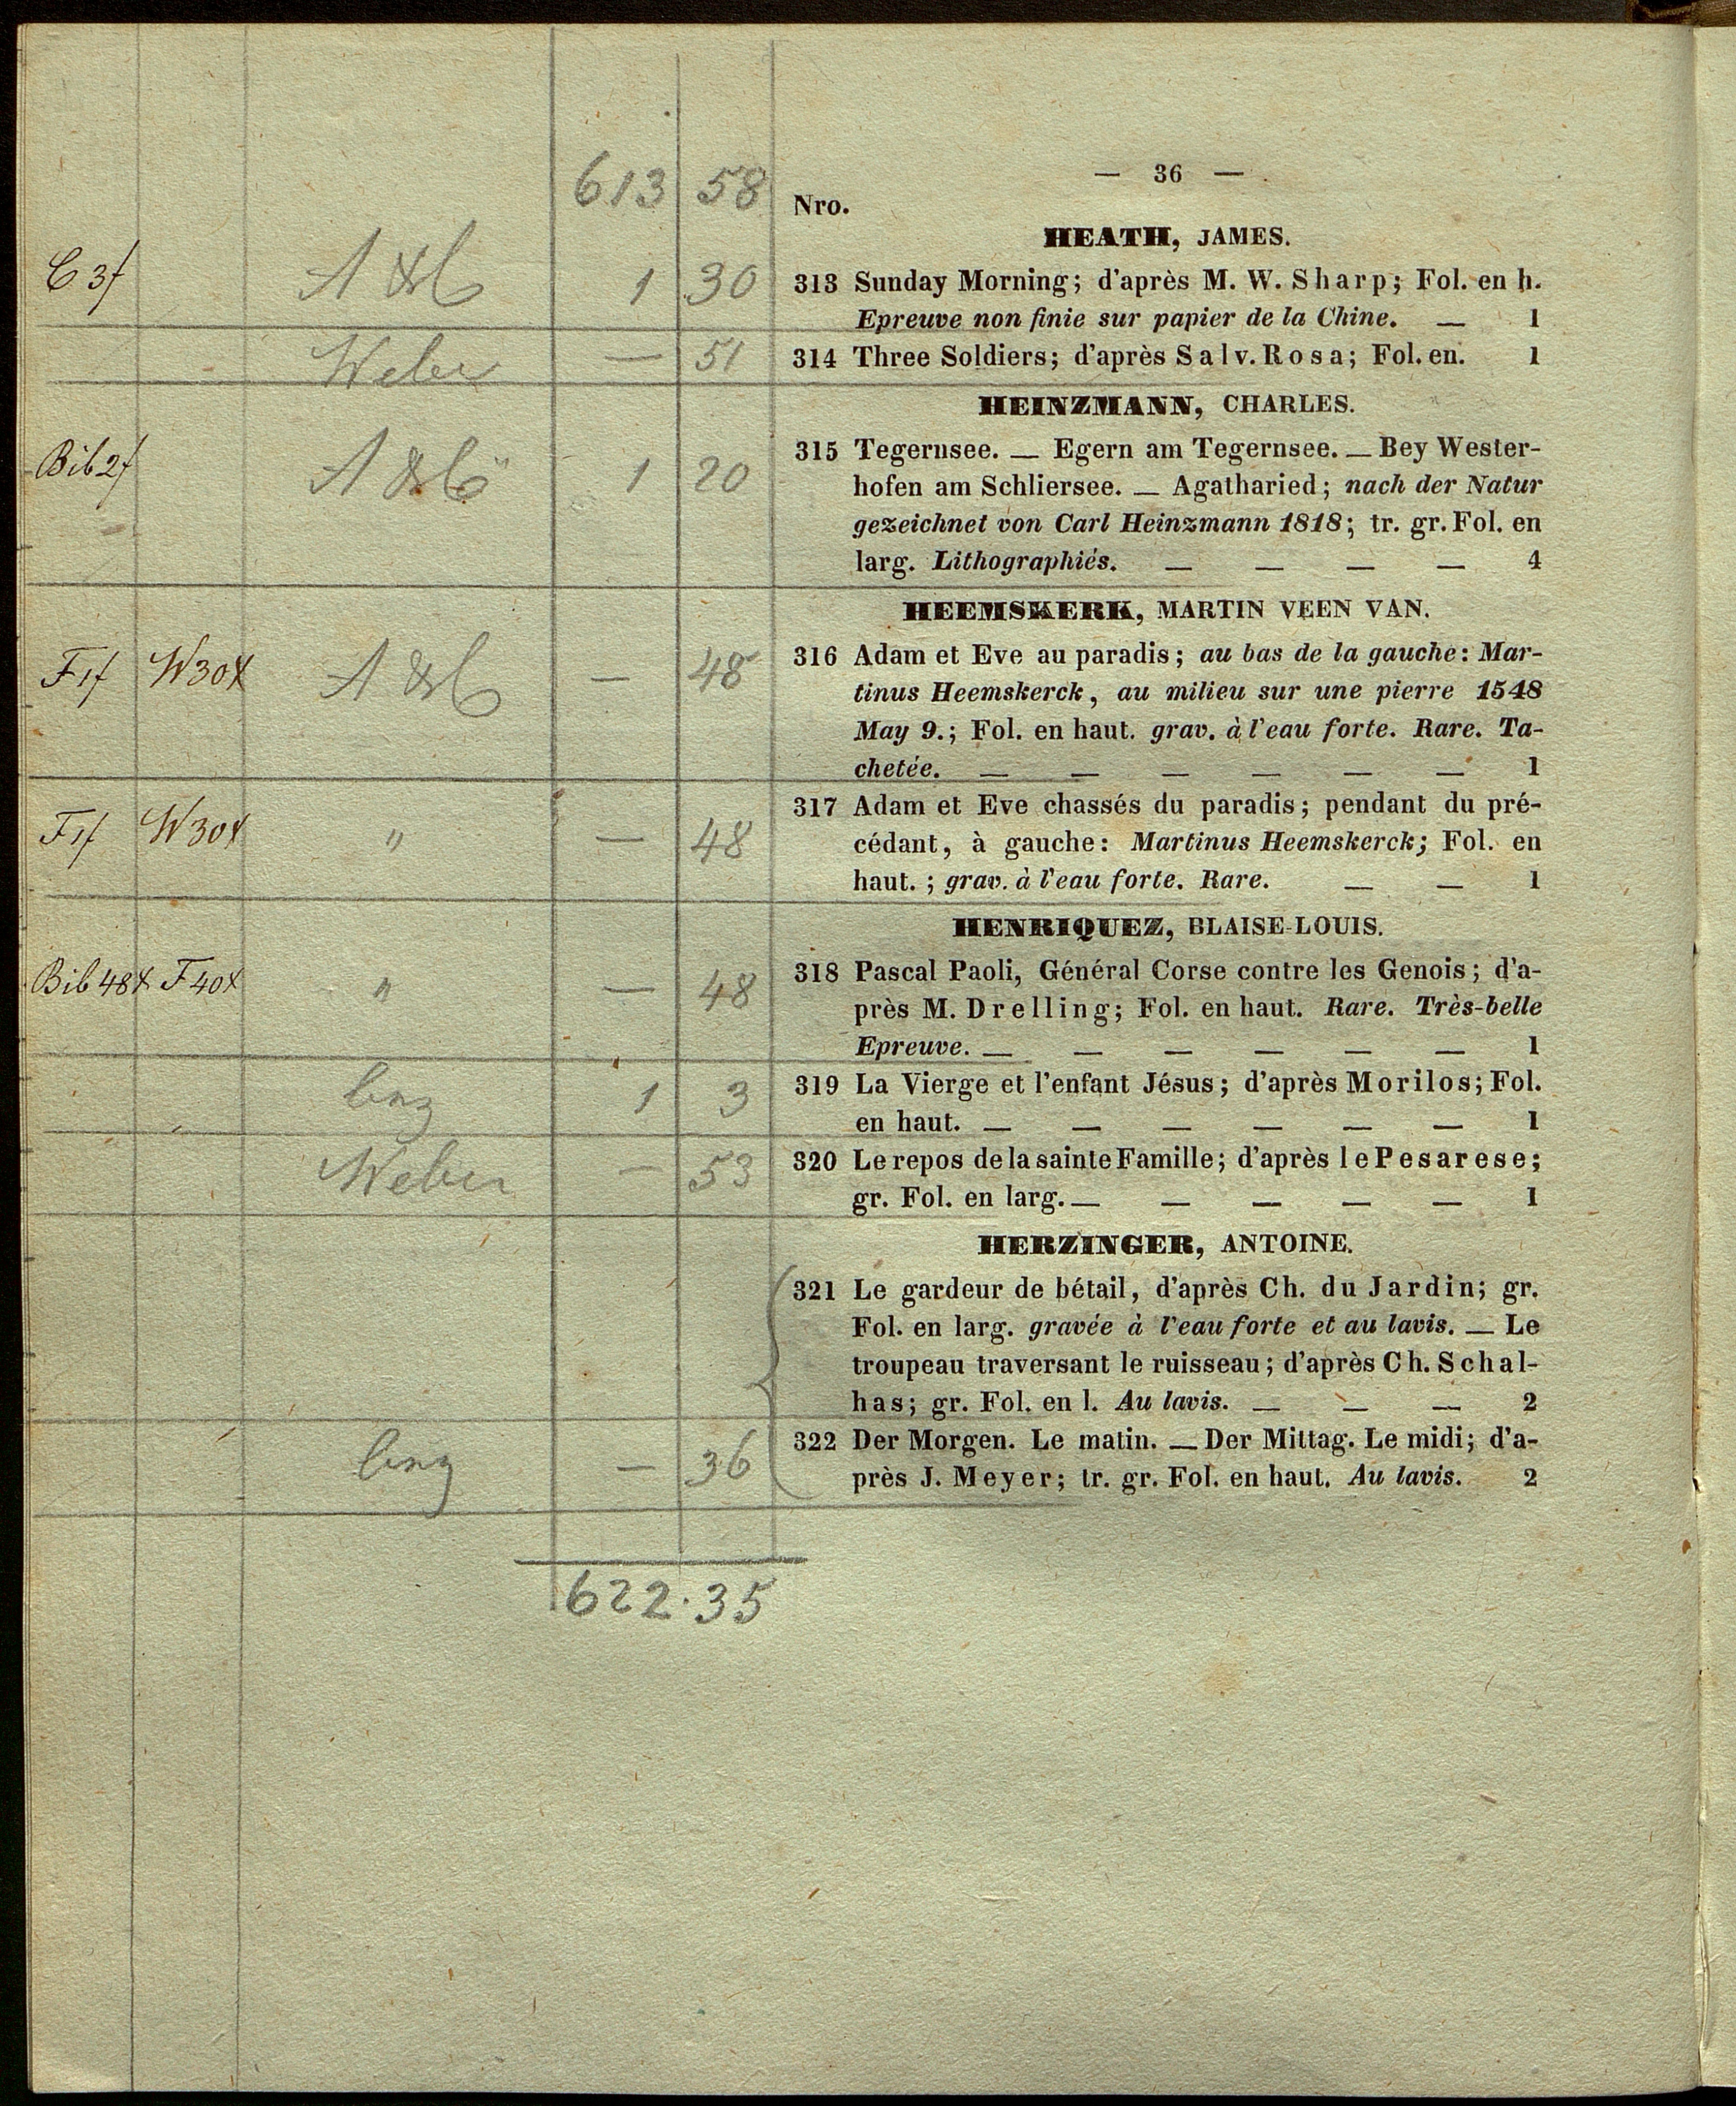 — 36 —
613 58
Nro.
HEATH, JAMES.
C 3f A & C 1 30
313 Sunday Morning; d'après M. W. Sharp; Fol. en h.
Epreuve non finie sur papier de la Chine. — 1
Weber — 51
314 Three Soldiers; d'après Salv. Rosa; Fol. en. 1
HEINZMANN, CHARLES.
Bib 2f 1 20
315 Tegernsee. — Egern am Tegernsee. — Bey Wester-
hofen am Schliersee. — Agatharied; nach der Natur
gezeichnet von Carl Heinzmann 1818; tr. gr. Fol. en
larg. Lithographiés. — — — — 4
HEEMSKERK, MARTIN VEEN VAN.
F 1f W 30x — 48
316 Adam et Eve au paradis; au bas de la gauche: Mar-
tinus Heemskerck, au milieu sur une pierre 1548
May 9.; Fol. en haut. grav. à l'eau forte. Rare. Ta-
chetée. — — — — — — 1
F 1f W 30x " — 48
317 Adam et Eve chassés du paradis; pendant du pré-
cédant, à gauche: Martinus Heemskerck; Fol. en
haut. ; grav. à l'eau forte. Rare. — — 1
HENRIQUEZ, BLAISE-LOUIS.
Bib 48x F 40x " — 48
318 Pascal Paoli, Général Corse contre les Genois; d'a-
près M. Drelling; Fol. en haut. Rare. Très-belle
Epreuve. — — — — — — 1
1 3
319 La Vierge et l'enfant Jésus; d'après Morilos; Fol.
en haut. — — — — — — 1
Weber — 53
320 Le repos de la sainte Famille; d'après le Pesarese;
gr. Fol. en larg. — — — — — 1
HERZINGER, ANTOINE.
321 Le gardeur de bétail, d'après Ch. du Jardin; gr.
Fol. en larg. gravée à l'eau forte et au lavis. — Le
troupeau traversant le ruisseau; d'après Ch. Schal-
has; gr. Fol. en l. Au lavis. — — — 2
— 36
322 Der Morgen. Le matin. — Der Mittag. Le midi; d'a-
près J. Meyer; tr. gr. Fol. en haut. Au lavis. 2
622.35